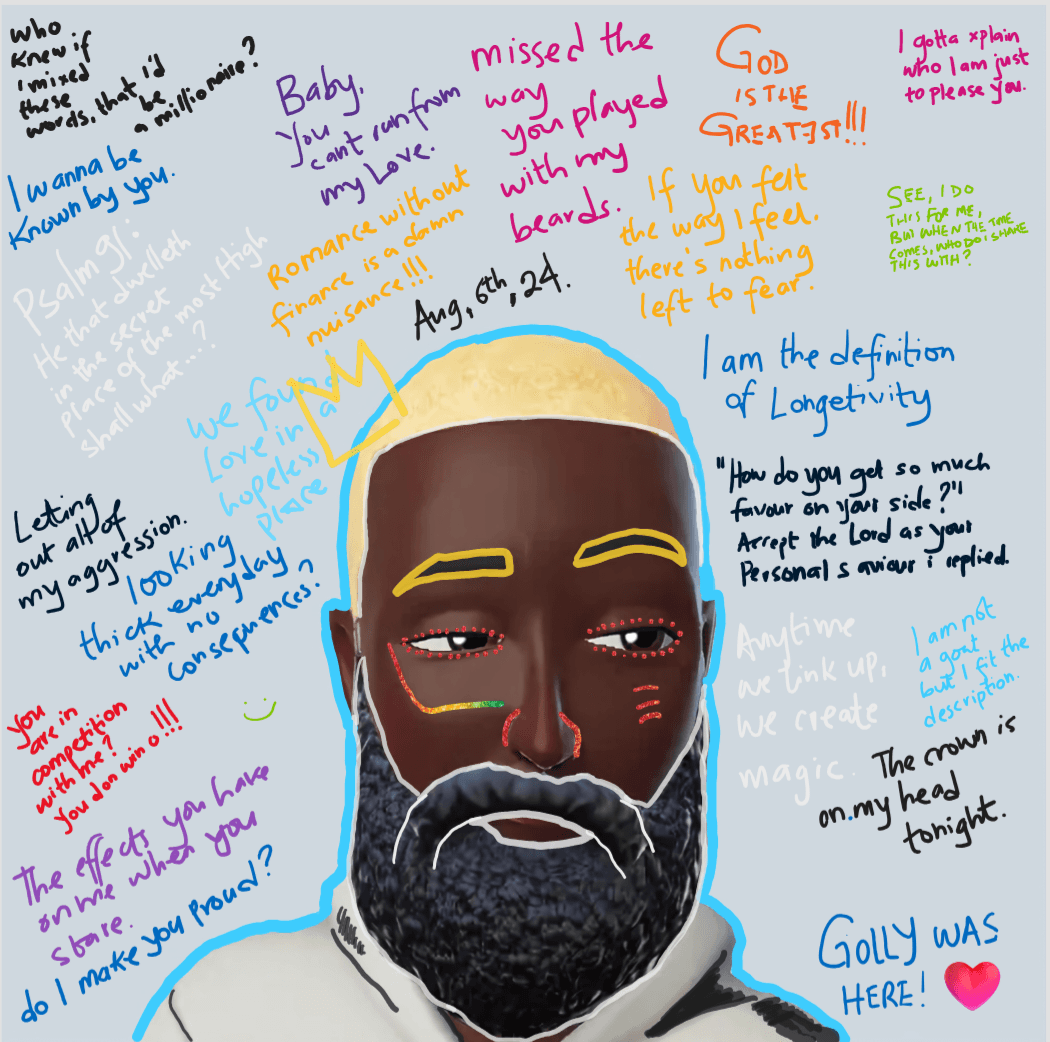 who
knew if
i mixed
these
words, that i'd
be
a millionaire?
Baby,
You
can't run from
my Love.
missed the
way
you played
with my
beards.
GOD
IS THE
GREATEST!!!
I gotta xplain
who I am just
to please you.
I wanna be
known by you.
Psalm 91:
He that dwelleth
in the secret
place of the most High
shall what....?
Romance without
finance is a damn
nuisance!!!
Aug, 6th, 24.
If you felt
the way I feel.
there's nothing
left to fear.
SEE, I DO
THIS FOR ME,
BUT WHEN THE TIME
COMES, WHO DO I SHARE
THIS WITH?
we found
Love in a
hopeless
place
I am the definition
of Longetivity
"How do you get so much
favour on your side?"
Accept the Lord as your
Personal saviour i replied.
Letting
out all of
my aggression.
looking
thick everyday
with no
consequences?
Anytime
we link up,
we create
magic.
I am not
a goat
but I fit the
description.
You
are in
competition
with me?
You don win o!!!
The crown is
on.my head
tonight.
The effects you have
on me when you
stare.
do I make you proud?
GOLLY WAS
HERE!